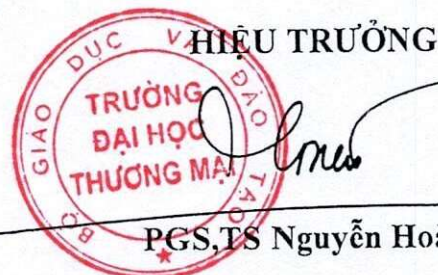 HIỆU TRƯỞNG
BỘ GIÁO DỤC VÀ ĐÀO TẠO
TRƯỜNG
ĐẠI HỌC
THƯƠNG MẠI
PGS,TS Nguyễn